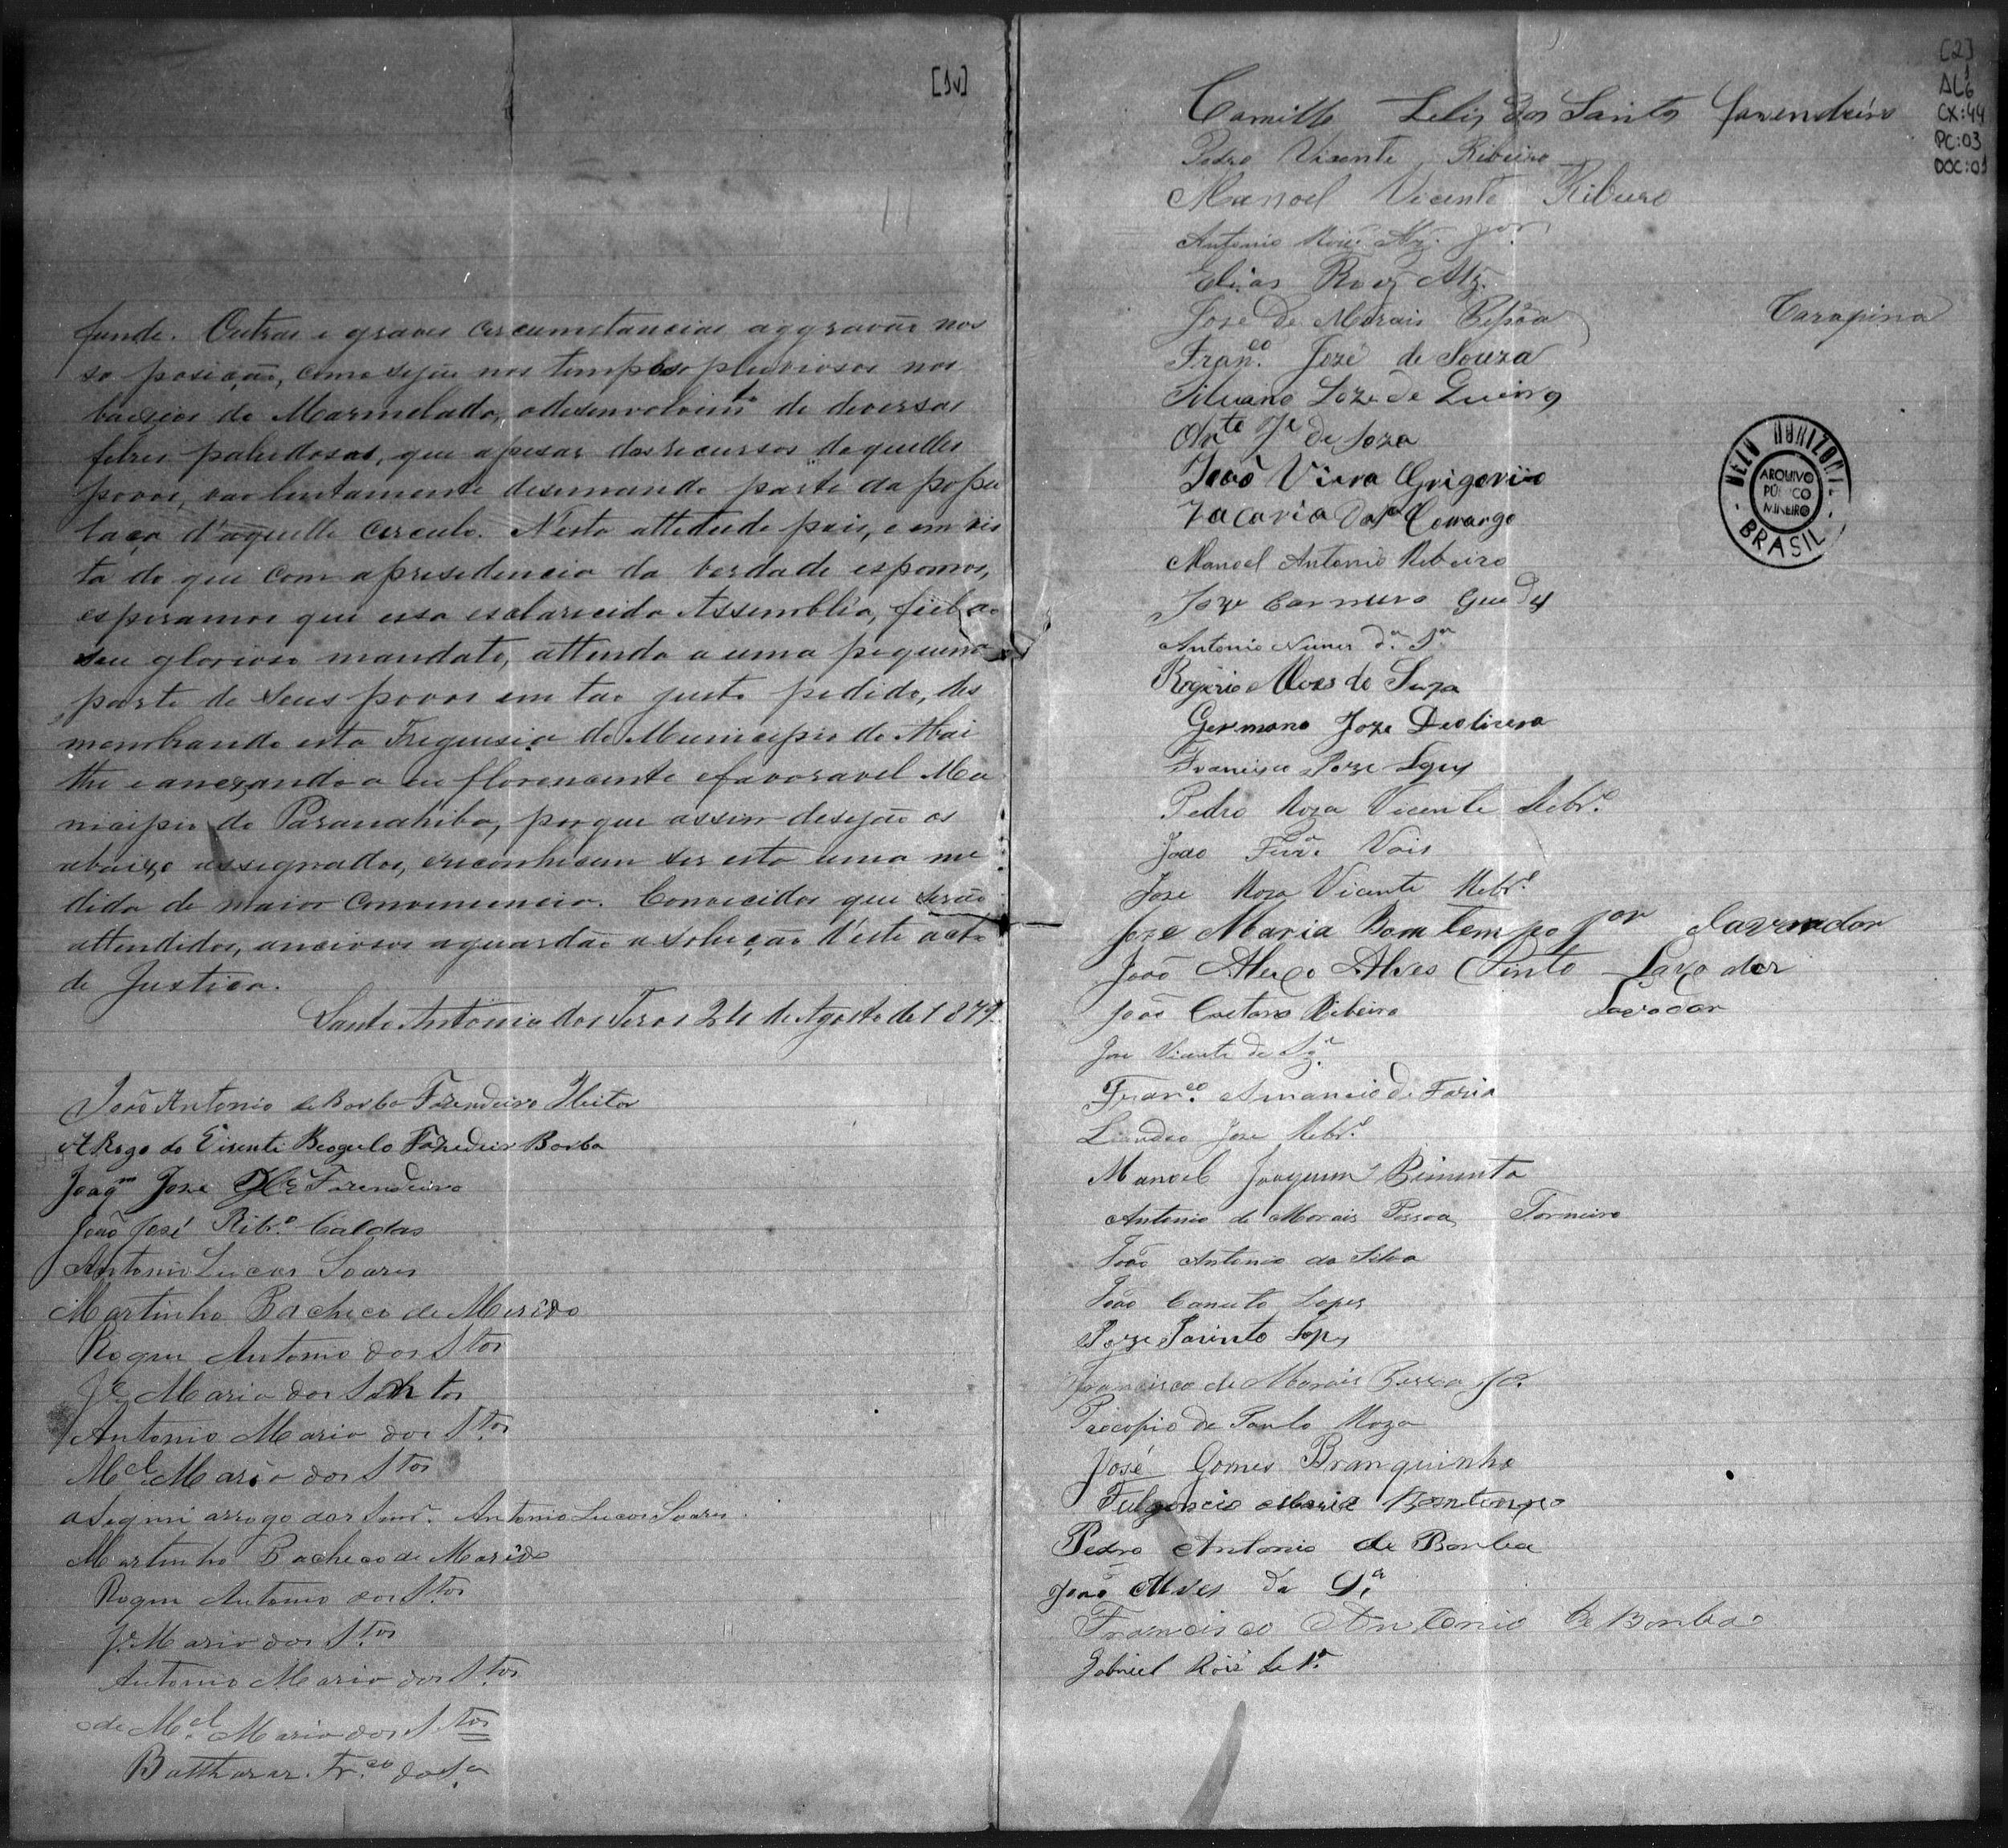 [1v]
funde. Outras e graves circumstancias aggravão nos
sa posição, como sejão nos tempos pluviosos nos
baixios do Marmelada, odesenvolvimto de diversas
febres paludosas, que apesar dos recursos daquelles
povos, vão lentamente desimando parte da popu
laçao d'aquelle circulo. Nesta attetude pois, e em vis
ta do que com apresidencia da verdade espomos,
esperamos que essa esclarecida Assemblia, fiel ao
seu glorioso mandato, attenda a uma pequena
parte de seus povos em tao justo pedido, des
membrando esta Freguesia do Municipio do Abai
the e anexando a ao florencente efavoravel Mu
nicipio do Paranahiba, porque assim desejão os
abaixo assignados, ereconhecem ser esta uma me
dida de maior conveniencia. Convecidos que serão
attendidos, anciosos aguardão a solução d'este acto
de Justiça.
Santo Antonio dos Tiros 24 de Agosto de 1879.
João Antonio de Borba Fazendeiro
A Rogo de Vicente Fazendeiro Borba
Joaqm Jose Fazendeiro
João José Ribro Caldas
Antonio Lucas Soares
Martinho Pacheco de
Roque Antonio dos Stos
Je Maria dos Santos
Antonio Maria dos Stos
Mel Maria dos Stos
asignei arrogo dos Snrs. Antonio Lucas Soares.
Martinho Pacheco de
Roque Antonio dos Stos
Je Maria dos Stos
Antonio Maria dos Stos
de Mel Maria dos Stos
Balthazar Frco da Sa
[2]
AL6
CX:44
PC:03
DOC:01
Camillo Lelis dos Santos Favendeiro
Pedro Vicente Ribeiro
Manoel Vicente Ribeiro
Antonio Jor
Elias Roiz
Jose de Morais Carapina
Franco Jozé de Souza
Silvano Joze de
Anto Je de Soza
João Viera Grigorio
Zacaria Camargo
Manoel Antonio Ribeiro
Joze Carneiro
Antonio Nunes da Sa
Rogerio Alves de Suza
Germano Joze Deoliveira
Francisco Joze
Pedro Roza Vicente Rebro
João
Jose Roza Vicente Rebro
Joze Maria Bomtempo Jor Lavrador
João Aleixo Alves Pinto Lavrador
João Caetano Ribeiro Lavrador
Jose Vicente de
Franco Amancio de Faria
Leandro Jose Rebro
Manoel Joaquim Pimenta
Antonio de Morais Pessoa Torneiro
João Antonio da Silva
João Canuto Lopes
Joze Jacinto Lops
Francisco de Morais Pessoa Jor
Procopio de Paula Roza
José Gomes Branquinho
Fulgencio Maria Bomtempo
Pedro Antonio de Borba
João Alves da Sa
Francisco Antonio de Borba
Gabriel Roiz da Sa
BELO HORIZONTE
ARQUIVO
PÚBLICO
MINEIRO
BRASIL